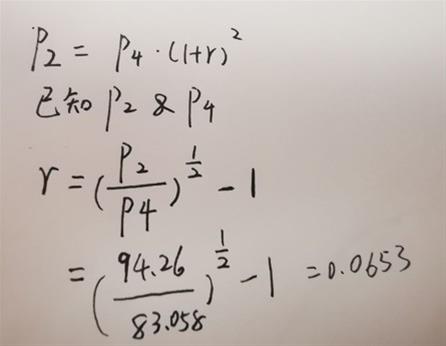 P2 = P4·(1+r)^2
已知 P2 & P4
r = (P2/P4)^(1/2) - 1
= (94.26/83.058)^(1/2) - 1 = 0.0653